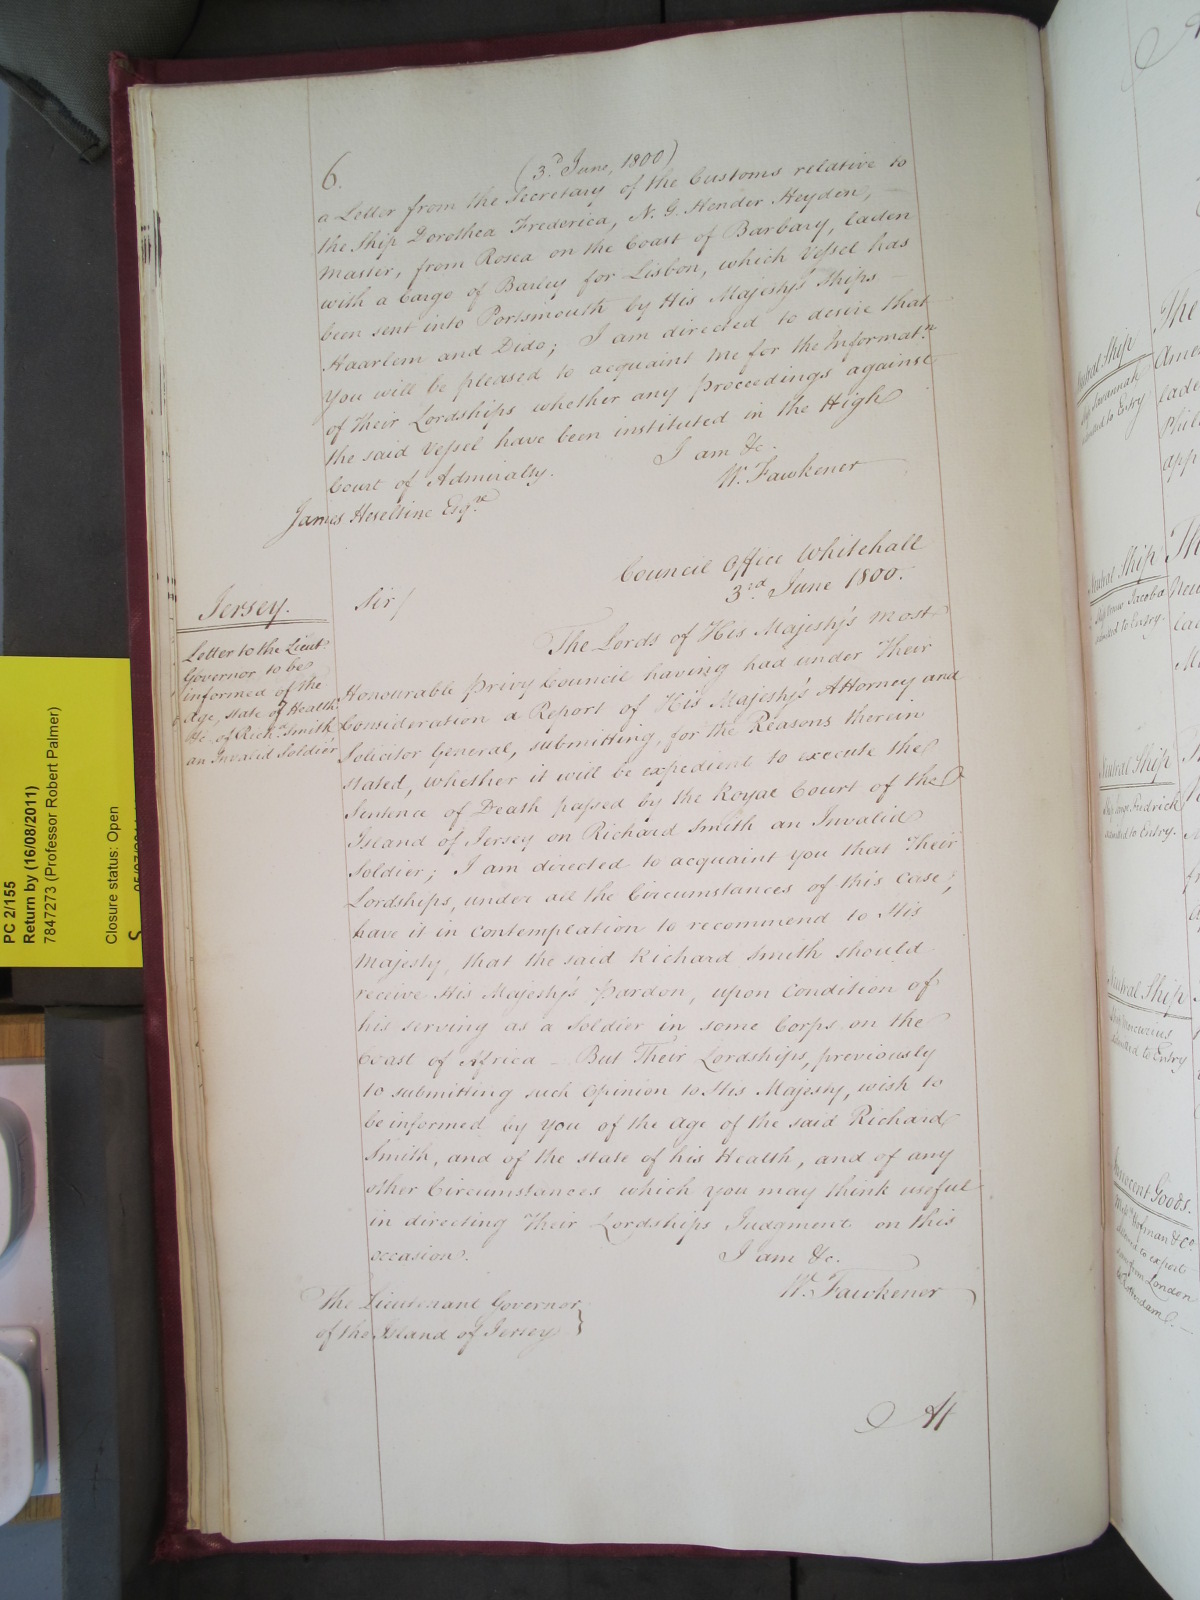 6.
(3.d June, 1800)
a Letter from the Secretary of the Customs relative to
the Ship Dorothea Frederica, N. G. Hender Heyden,
Master, from Rosea on the Coast of Barbary, laden
with a Cargo of Barley for Lisbon, which Vessel has
been sent into Portsmouth by His Majesty's Ships
Haarlem and Dido; I am directed to desire that
You will be pleased to acquaint me for the Informat.n
of Their Lordships whether any Proceedings against
the said Vessel have been instituted in the High
Court of Admiralty.
I am &c.
W. Fawkener
James Heseltine Esq.re
Council Office Whitehall
3.rd June 1800.
Jersey.
Letter to the Lieut.
Governor to be
informed of the
Age, State of Health
&c. of Rich.d Smith
an Invalid Soldier
Sir/
The Lords of His Majesty's most
Honourable Privy Council having had under Their
Consideration a Report of His Majesty's Attorney and
Solicitor General, submitting, for the Reasons therein
stated, whether it will be expedient to execute the
Sentence of Death passed by the Royal Court of the
Island of Jersey on Richard Smith an Invalid
Soldier; I am directed to acquaint you that Their
Lordships, under all the Circumstances of this case,
have it in contemplation to recommend to His
Majesty, that the said Richard Smith should
receive His Majesty's Pardon, upon Condition of
his serving as a Soldier in some Corps on the
Coast of Africa - But Their Lordships, previously
to submitting such Opinion to His Majesty, wish to
be informed by you of the Age of the said Richard
Smith, and of the state of his Health, and of any
other Circumstances which you may think useful
in directing Their Lordships Judgment on this
occasion.
I am &c.
W. Fawkener
The Lieutenant Governor
of the Island of Jersey }
At
PC 2/155
Return by (16/08/2011)
7847273 (Professor Robert Palmer)
Closure status: Open
The
Amer
lade
Phil
app
Ship
Savannah
to Entry
Neutral Ship
Jacoba
to Entry.
Th
Neutral Ship
Fredrick
to Entry.
Neutral Ship
Mercurius
to Entry
Innocent Goods.
Hofman & Co.
to export
from London